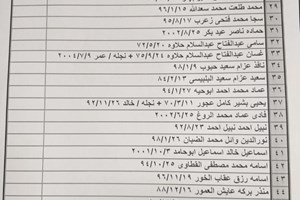 ٢٩ محمد طلعت محمد سعدالله ٩٦/١/١٥
٣٠ سجا محمد فتحي زعرب ٩٥/٨/١٧
٣١ حمادة ناصر عيد بكر ٢٠٠٢/٨/٢٥
٣٢ سامي عبدالفتاح عبدالسلام حلاوه ٧٢/٥/٢٠
٣٣ غسان عبدالفتاح عبدالسلام حلاوه ٧٥/٩/٢٤ + نجله / عمر ٢٠٠٤/٧/٩
٣٤ نافذ عزام سعيد حبوب ٩٨/١/٩
٣٥ سعيد عزام سعيد البلبيسي ٨٤/٢/١٣
٣٦ عماد محمد احمد ابوحيه ٩٤/١/٢٧
٣٧ يحيى بشير كامل عجور ٧٠/٣/١١ + نجله / خالد ٩٢/١١/٢٦
٣٨ فادى عماد محمد الروغ ٢٠٠٢/٦/٢٥
٣٩ نبيل احمد نبيل احمد ٩٢/٨/٢٣
٤٠ نورالدين وائل محمد الضبان ٩٨/١/٢٦
٤١ اسماعيل خالد اسماعيل ابوحامد ٢٠٠١/١٠/٣
٤٢ اسامه محمد مصطفى القطاوى ٩٤/١٠/٢٥
٤٣ اسامه رزق عقاب الخور ٩٦/١١/١٩
٤٤ منذر بركه عايش العمور ٨٨/١٢/١٦